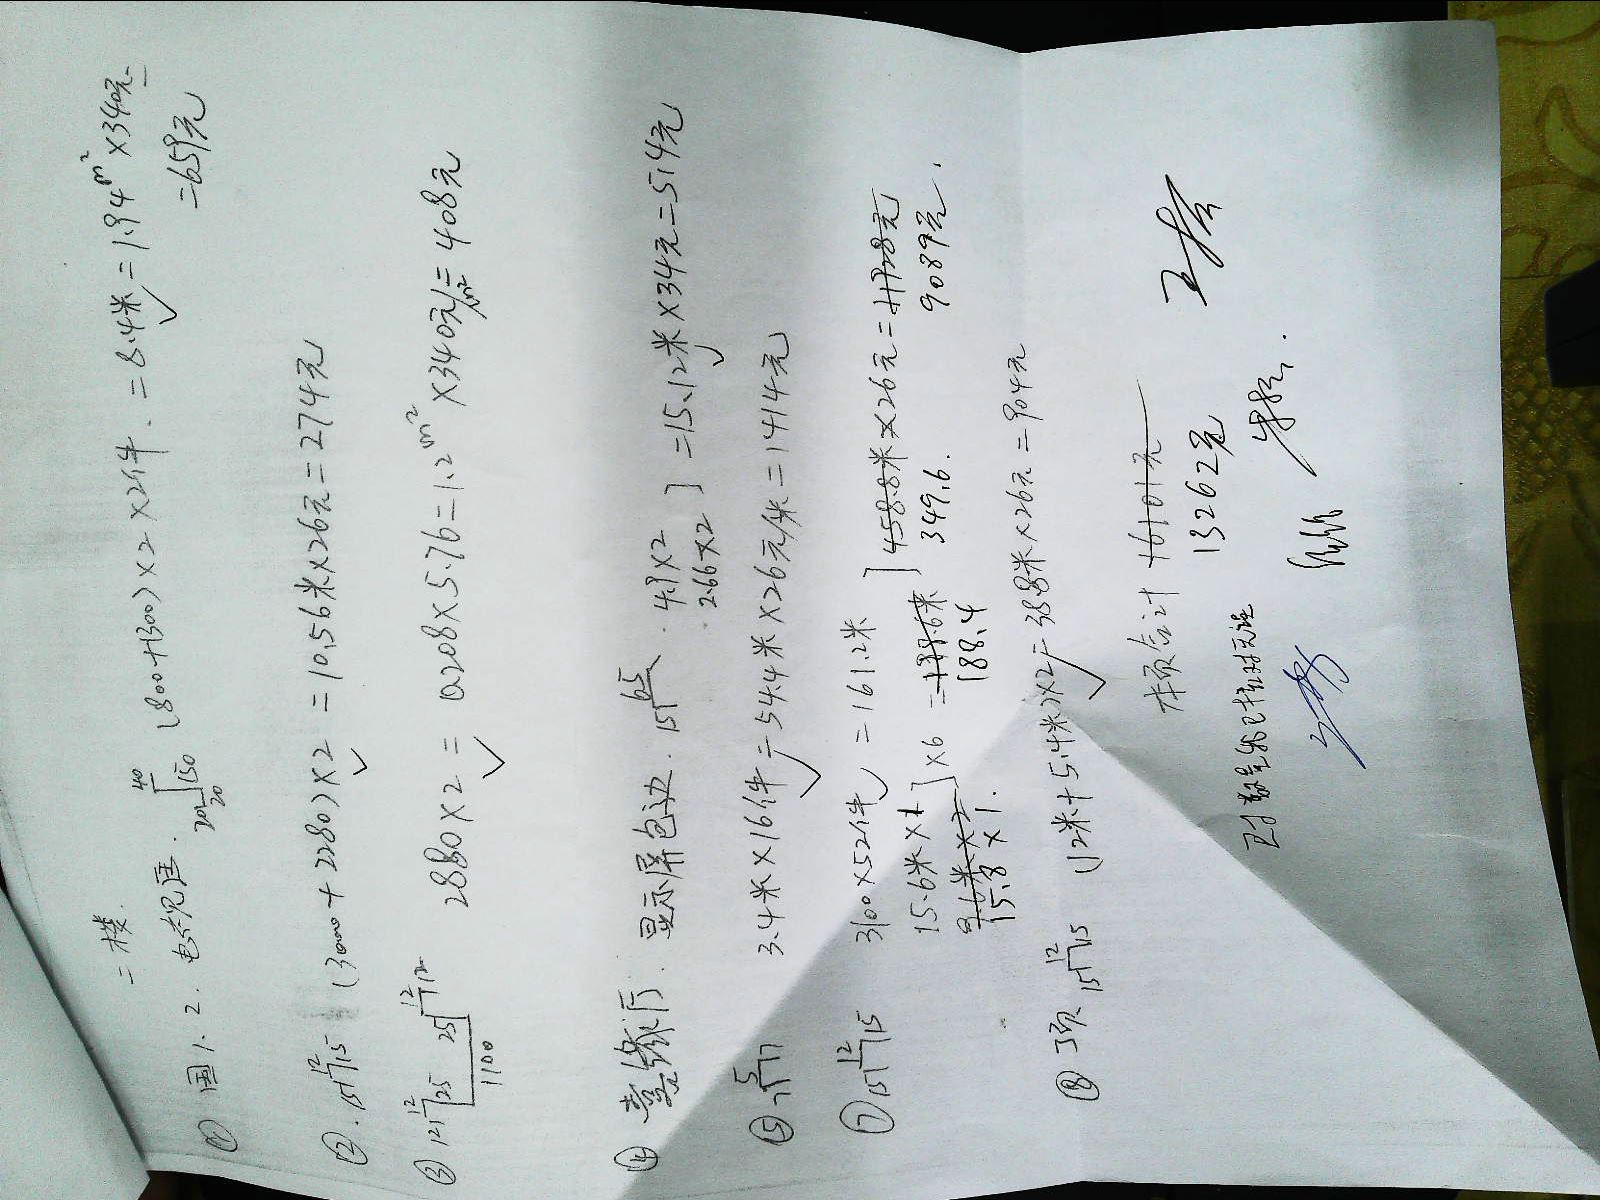 二楼.
① 图1.2. 电视匡. 20 20 40 150 (800+1300)×2×2件. =8.4米=1.94m²×340元
=659元
②. 15 12 15 (3000+2280)×2=10.56米×26元=274元
③ 12 12 25 25 12 12 2880×2=0.208×5.76=1.2m²×340元/m²=408元
1100
④ 喜缘厅. 显示屏包边. 15 65. 4.9×2
2.66×2 ]=15.12米×34元=514元
⑤ 7 5 7 3.4米×16件=54.4米×26元/米=1414元
⑦ 15 12 15 3100×52件=161.2米
15.6米×1
15.8×1. ]×6=188.4 ] 349.6.×26元=9089元.
⑧ 3项 15 12 15 (12米+5.4米)×2=38.8米×26元=904元
本页合计 16101元
13262元